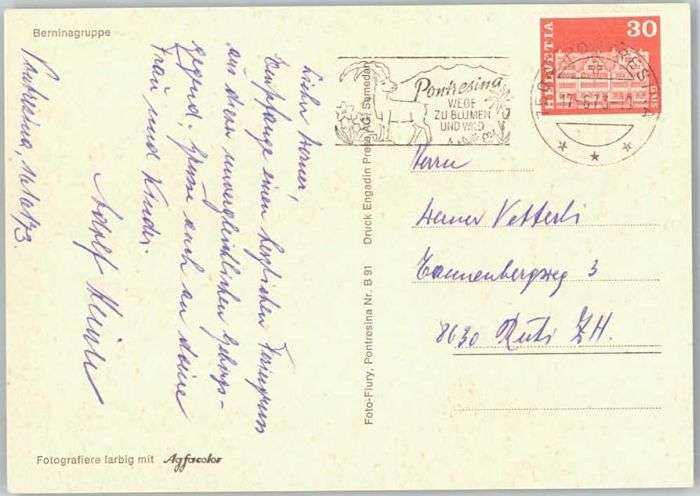 Berninagruppe
Pontresina, 16.10.73.
Lieber Werner,
Empfange einen herzlichen Feriengruss
aus dieser unvergleichlichen Gebirgs-
gegend. Grüsse auch an deine
Frau und Kinder.
Adolf
Fotografiere farbig mit Agfacolor
Foto-Flury, Pontresina Nr. B 91 Druck Engadin Press AG, Samedan
Pontresina
WEGE
ZU BLUMEN
UND WILD
HELVETIA
30
Herrn
Werner Vetterli
Tannenbergweg 3
8630 Rüti ZH.